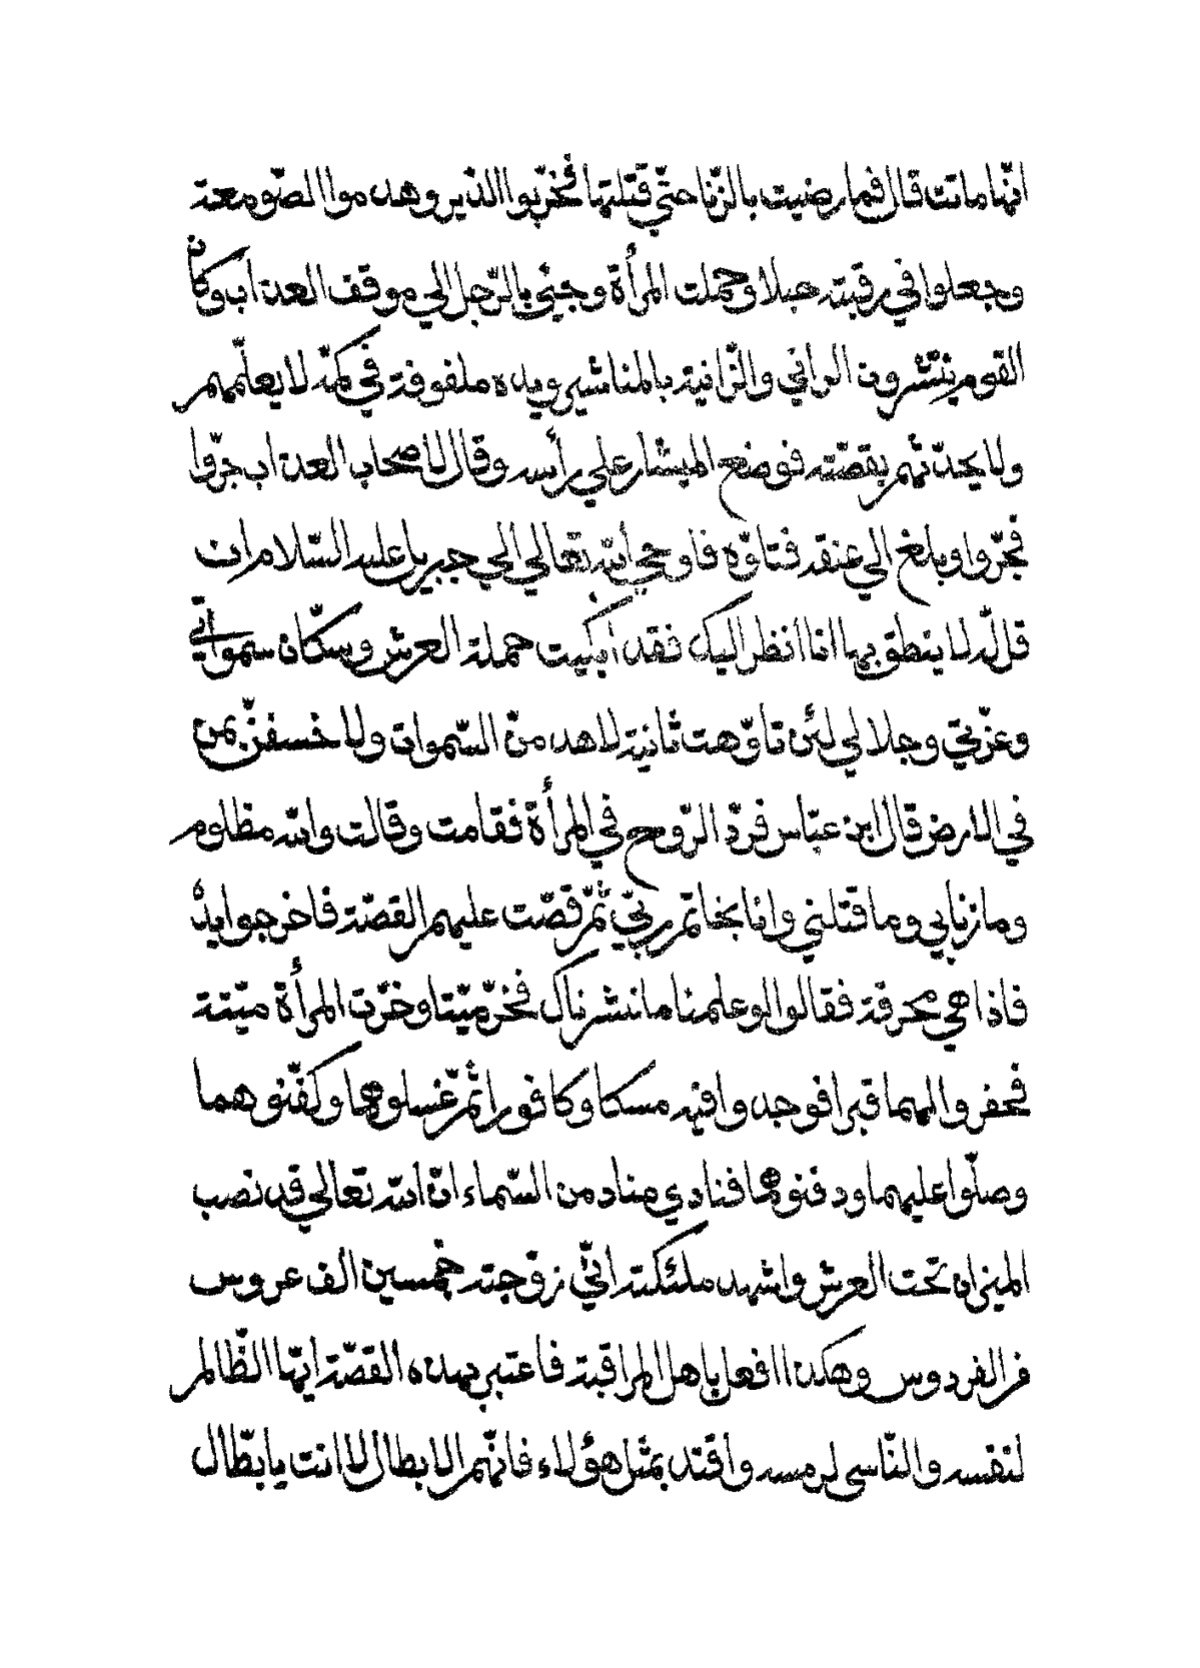 انّها ماتت قال فما رضيت بالزّنا حتّي قتلتها فخرّبوا الدّير وهدموا الصّومعته
وجعلوا في رقبته حبلا وحملت المرأة وجيئ بالرّجل الي موقف العذاب وكان
القوم ينتّشرون الزاني والزّانية بالمناشير ويده ملفوفة في كمّه لا يعلّمهم
ولا يحدّثهم بقصّته فوضع الميشار علي رأسه وقال لاصحاب العذاب جرّوا
فجرّوا وبلغ الي عنقه فتاوّه فاوحي اللّه تعالي الي جبريل عليه السّلام ان
قل له لا ينطق بها انا انظر اليك فقد ابكيت حملة العرش وسكّان سمواتي
وعزّتي وجلالي لئن تاوّهت ثانية لاهدمنّ السّموات ولاخسفنّ بمن
في الارض قال ابن عبّاس فردّ الرّوح في المرأة فقامت وقالت واللّه مظلوم
وما زنا بي وما قتلني وانا بخاتم ربّي ثمّ قصّت عليهم القصّة فاخرجوا يده
فاذا هي محرقة فقالوا لو علمنا ما نشرناك فخرّ ميّتا وخرّت المرأة ميّتة
فحفروا لهما قبرا فوجدوا فيه مسكا وكافورا ثمّ غسلوهما وكفّنوهما
وصلّوا عليهما ودفنوهما فنادي مناد من السّماء انّ اللّه تعالي قد نصب
الميزان تحت العرش واشهد ملئكته انّي زوّجته خمسين الف عروس
من الفردوس وهكذا افعل باهل المراقبة فاعتبر بهذه القصّة ايّها الظّالم
لنفسه والنّاسي لرمسه واقتد بمثل هؤلاء فانّهم الابطال لا انت يا بطّال